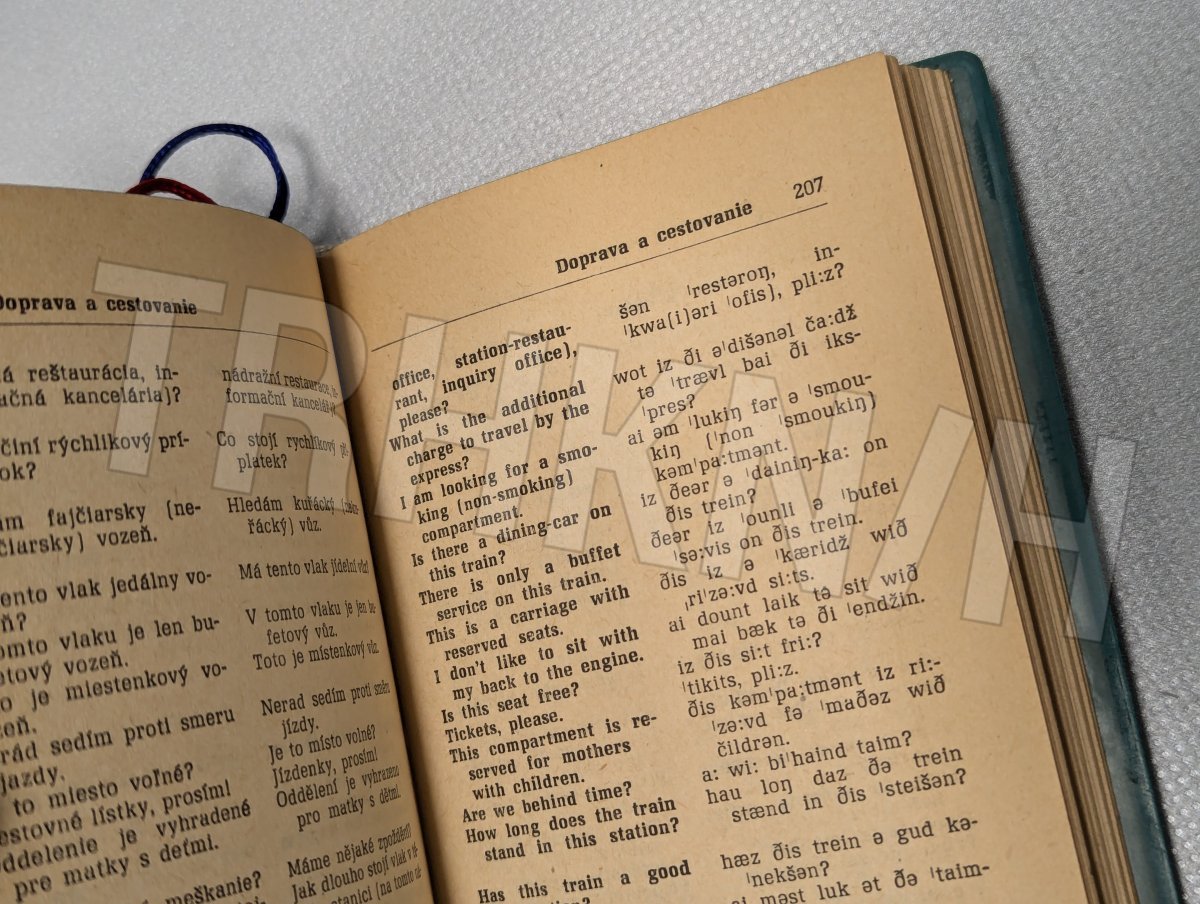 Doprava a cestovanie
reštaurácia, in-
kancelária)?
rýchlikový prí-
fajčiarsky (ne-
vozeň.
vlak jedálny vo-
vlaku je len bu-
vozeň.
je miestenkový vo-
sedím proti smeru
jazdy.
to miesto voľné?
lístky, prosím!
je vyhradené
pre matky s deťmi.
meškanie?
nádražní restaurace, in-
formační kancelář)?
Co stojí rychlíkový pří-
platek?
Hledám kuřácký
řácký) vůz.
Má tento vlak jídelní vůz?
V tomto vlaku je jen bu-
fetový vůz.
Toto je místenkový vůz.
Nerad sedím proti směru
jízdy.
Je to místo volné?
Jízdenky, prosím!
Oddělení je vyhrazeno
pro matky s dětmi.
Máme nějaké zpoždění?
Jak dlouho stojí vlak v té-
stanici (na tomto
Doprava a cestovanie 207
office, station-restau-
rant, inquiry office),
please?
What is the additional
charge to travel by the
express?
I am looking for a smo-
king (non-smoking)
compartment.
Is there a dining-car on
this train?
There is only a buffet
service on this train.
This is a carriage with
reserved seats.
I don't like to sit with
my back to the engine.
Is this seat free?
Tickets, please.
This compartment is re-
served for mothers
with children.
Are we behind time?
How long does the train
stand in this station?
Has this train a good
šən ˈrestəroŋ, in-
ˈkwa(i)əri ˈofis), pli:z?
wot iz ði əˈdišənəl ča:dž
tə ˈtrævl bai ði iks-
ˈpres?
ai əm ˈlukiŋ fər ə ˈsmou-
kiŋ (ˈnon ˈsmoukiŋ)
kəmˈpa:tmənt.
iz ðeər ə ˈdainiŋ-ka: on
ðis trein?
ðeər iz ˈounli ə ˈbufei
ˈsə:vis on ðis trein.
ðis iz ə ˈkæridž wið
ˌriˈzə:vd si:ts.
ai dount laik tə sit wið
mai bæk tə ði ˈendžin.
iz ðis si:t fri:?
ˈtikits, pli:z.
ðis kəmˈpa:tmənt iz ri:-
ˈzə:vd fə ˈmaðəz wið
čildrən.
a: wi: biˈhaind taim?
hau loŋ daz ðə trein
stænd in ðis ˈsteišən?
hæz ðis trein ə gud kə-
ˈnekšən?
ai məst luk ət ðə ˈtaim-
TRHKNIH